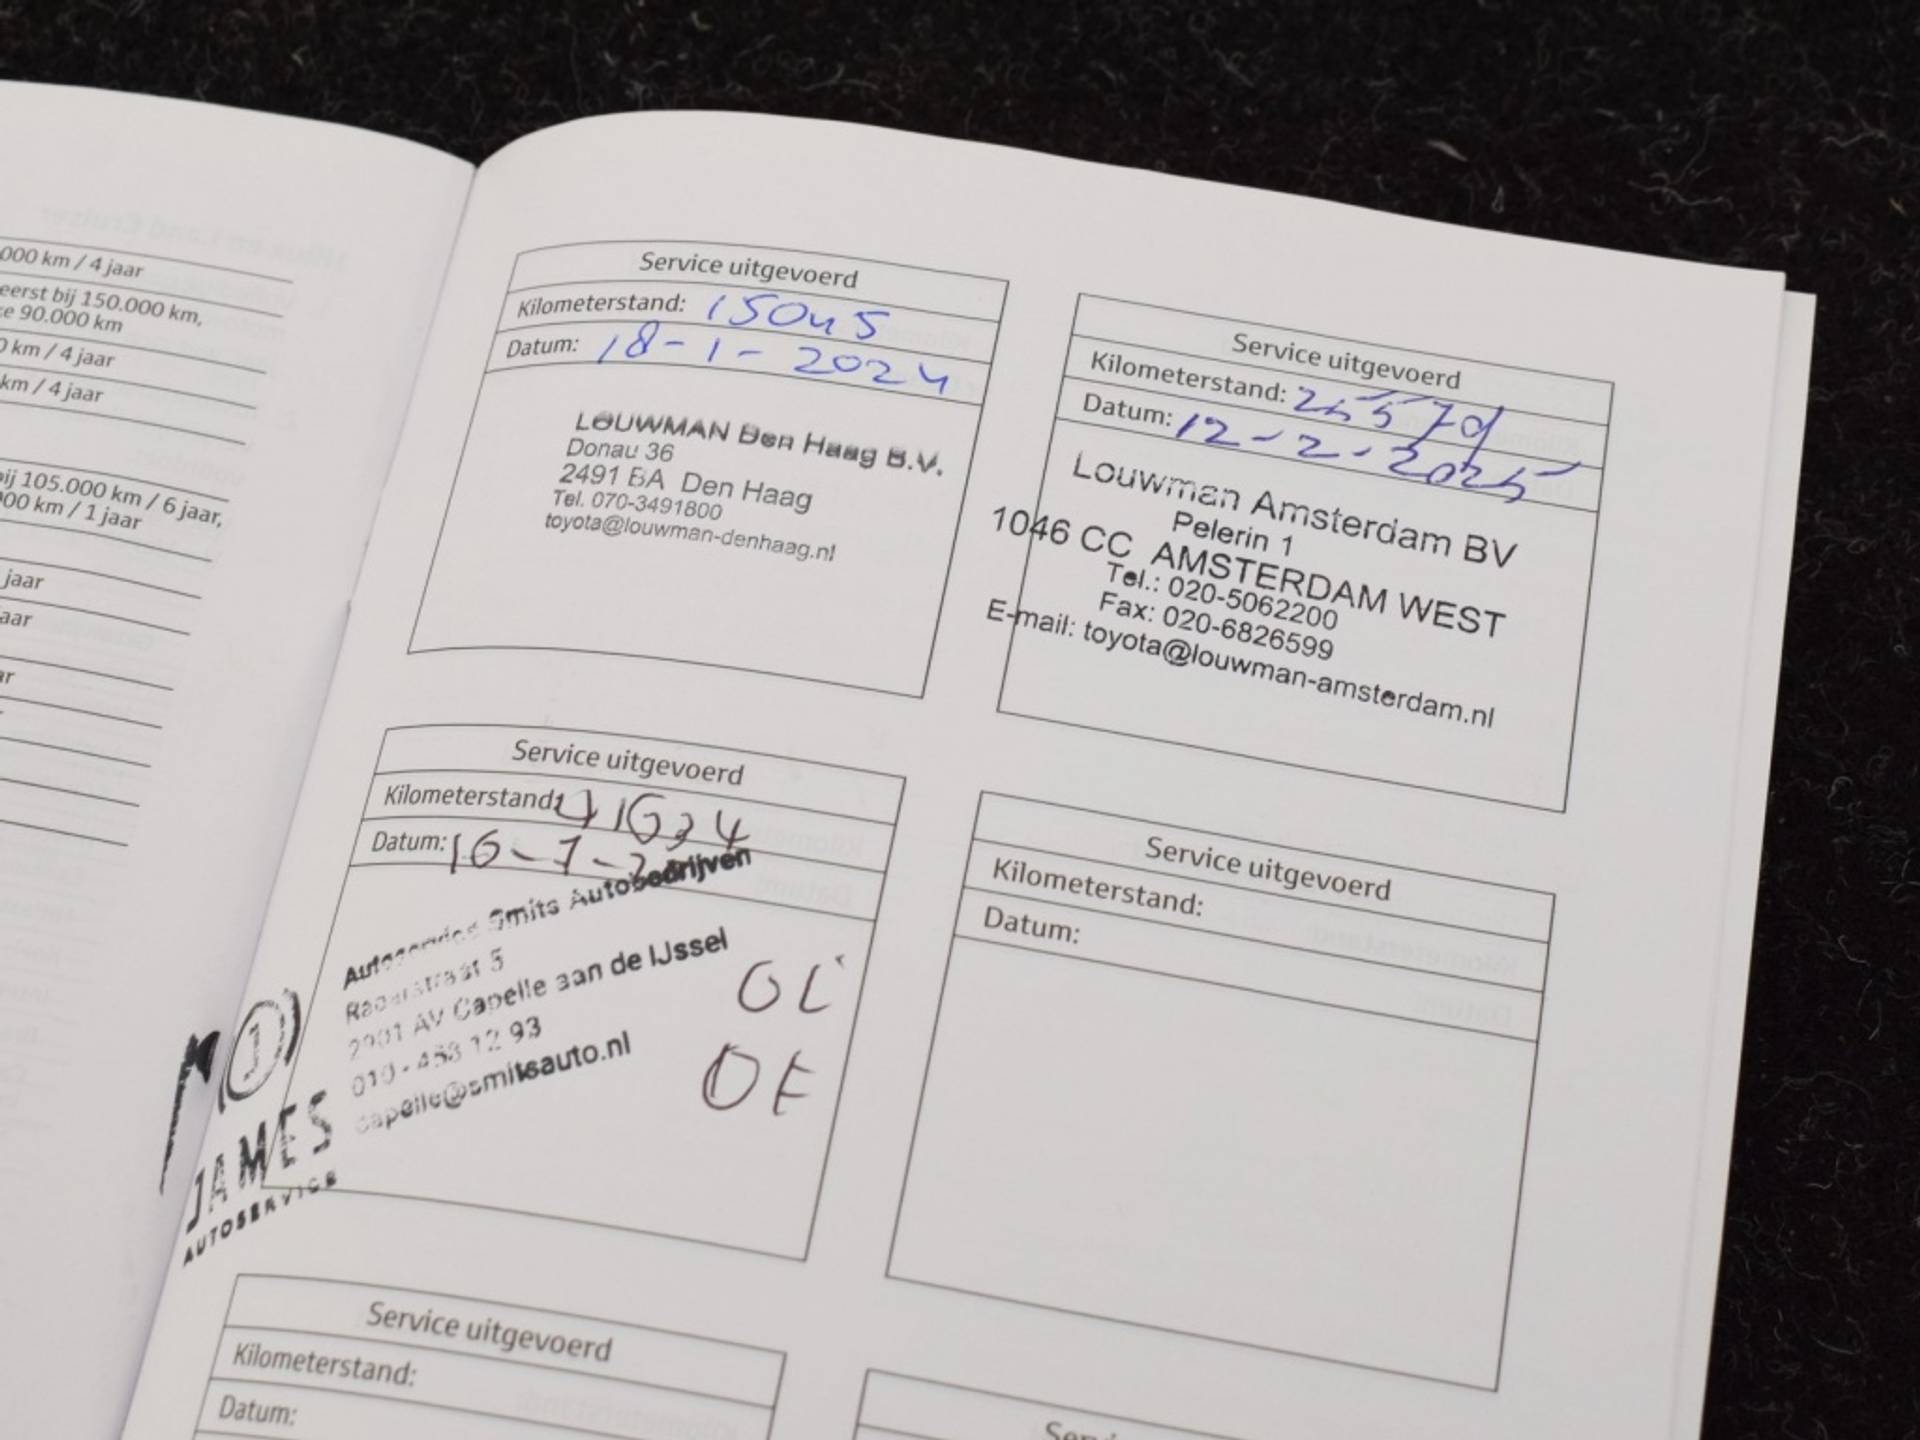 000 km / 4 jaar
eerst bij 150.000 km,
e 90.000 km
0 km / 4 jaar
km / 4 jaar
ij 105.000 km / 6 jaar,
00 km / 1 jaar
jaar
aar
ar
Service uitgevoerd
Kilometerstand: 15045
Datum: 18-1-2024
LOUWMAN Den Haag B.V.
Donau 36
2491 BA Den Haag
Tel. 070-3491800
toyota@louwman-denhaag.nl
Service uitgevoerd
Kilometerstand:
Datum: 12-2-2025
Louwman Amsterdam BV
Pelerin 1
1046 CC AMSTERDAM WEST
Tel.: 020-5062200
Fax: 020-6826599
E-mail: toyota@louwman-amsterdam.nl
Service uitgevoerd
Kilometerstand: 41634
Datum: 16-7-2
Autoservice Smits Autobedrijven
5
AV Capelle aan de IJssel
010 - 458 12 93
capelle@smitsauto.nl
JAMES
AUTOSERVICE
OL
OF
Service uitgevoerd
Kilometerstand:
Datum:
Service uitgevoerd
Kilometerstand:
Datum: